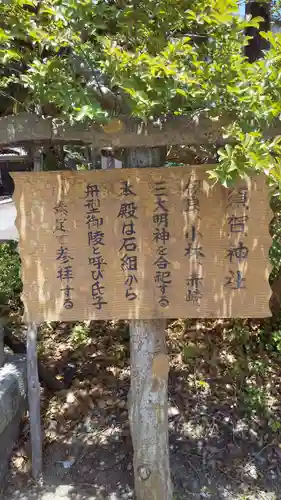 須賀神社
小林 赤崎
三大明神を合祀する
本殿は石組から
舟型御陵と呼び氏子
参拝する